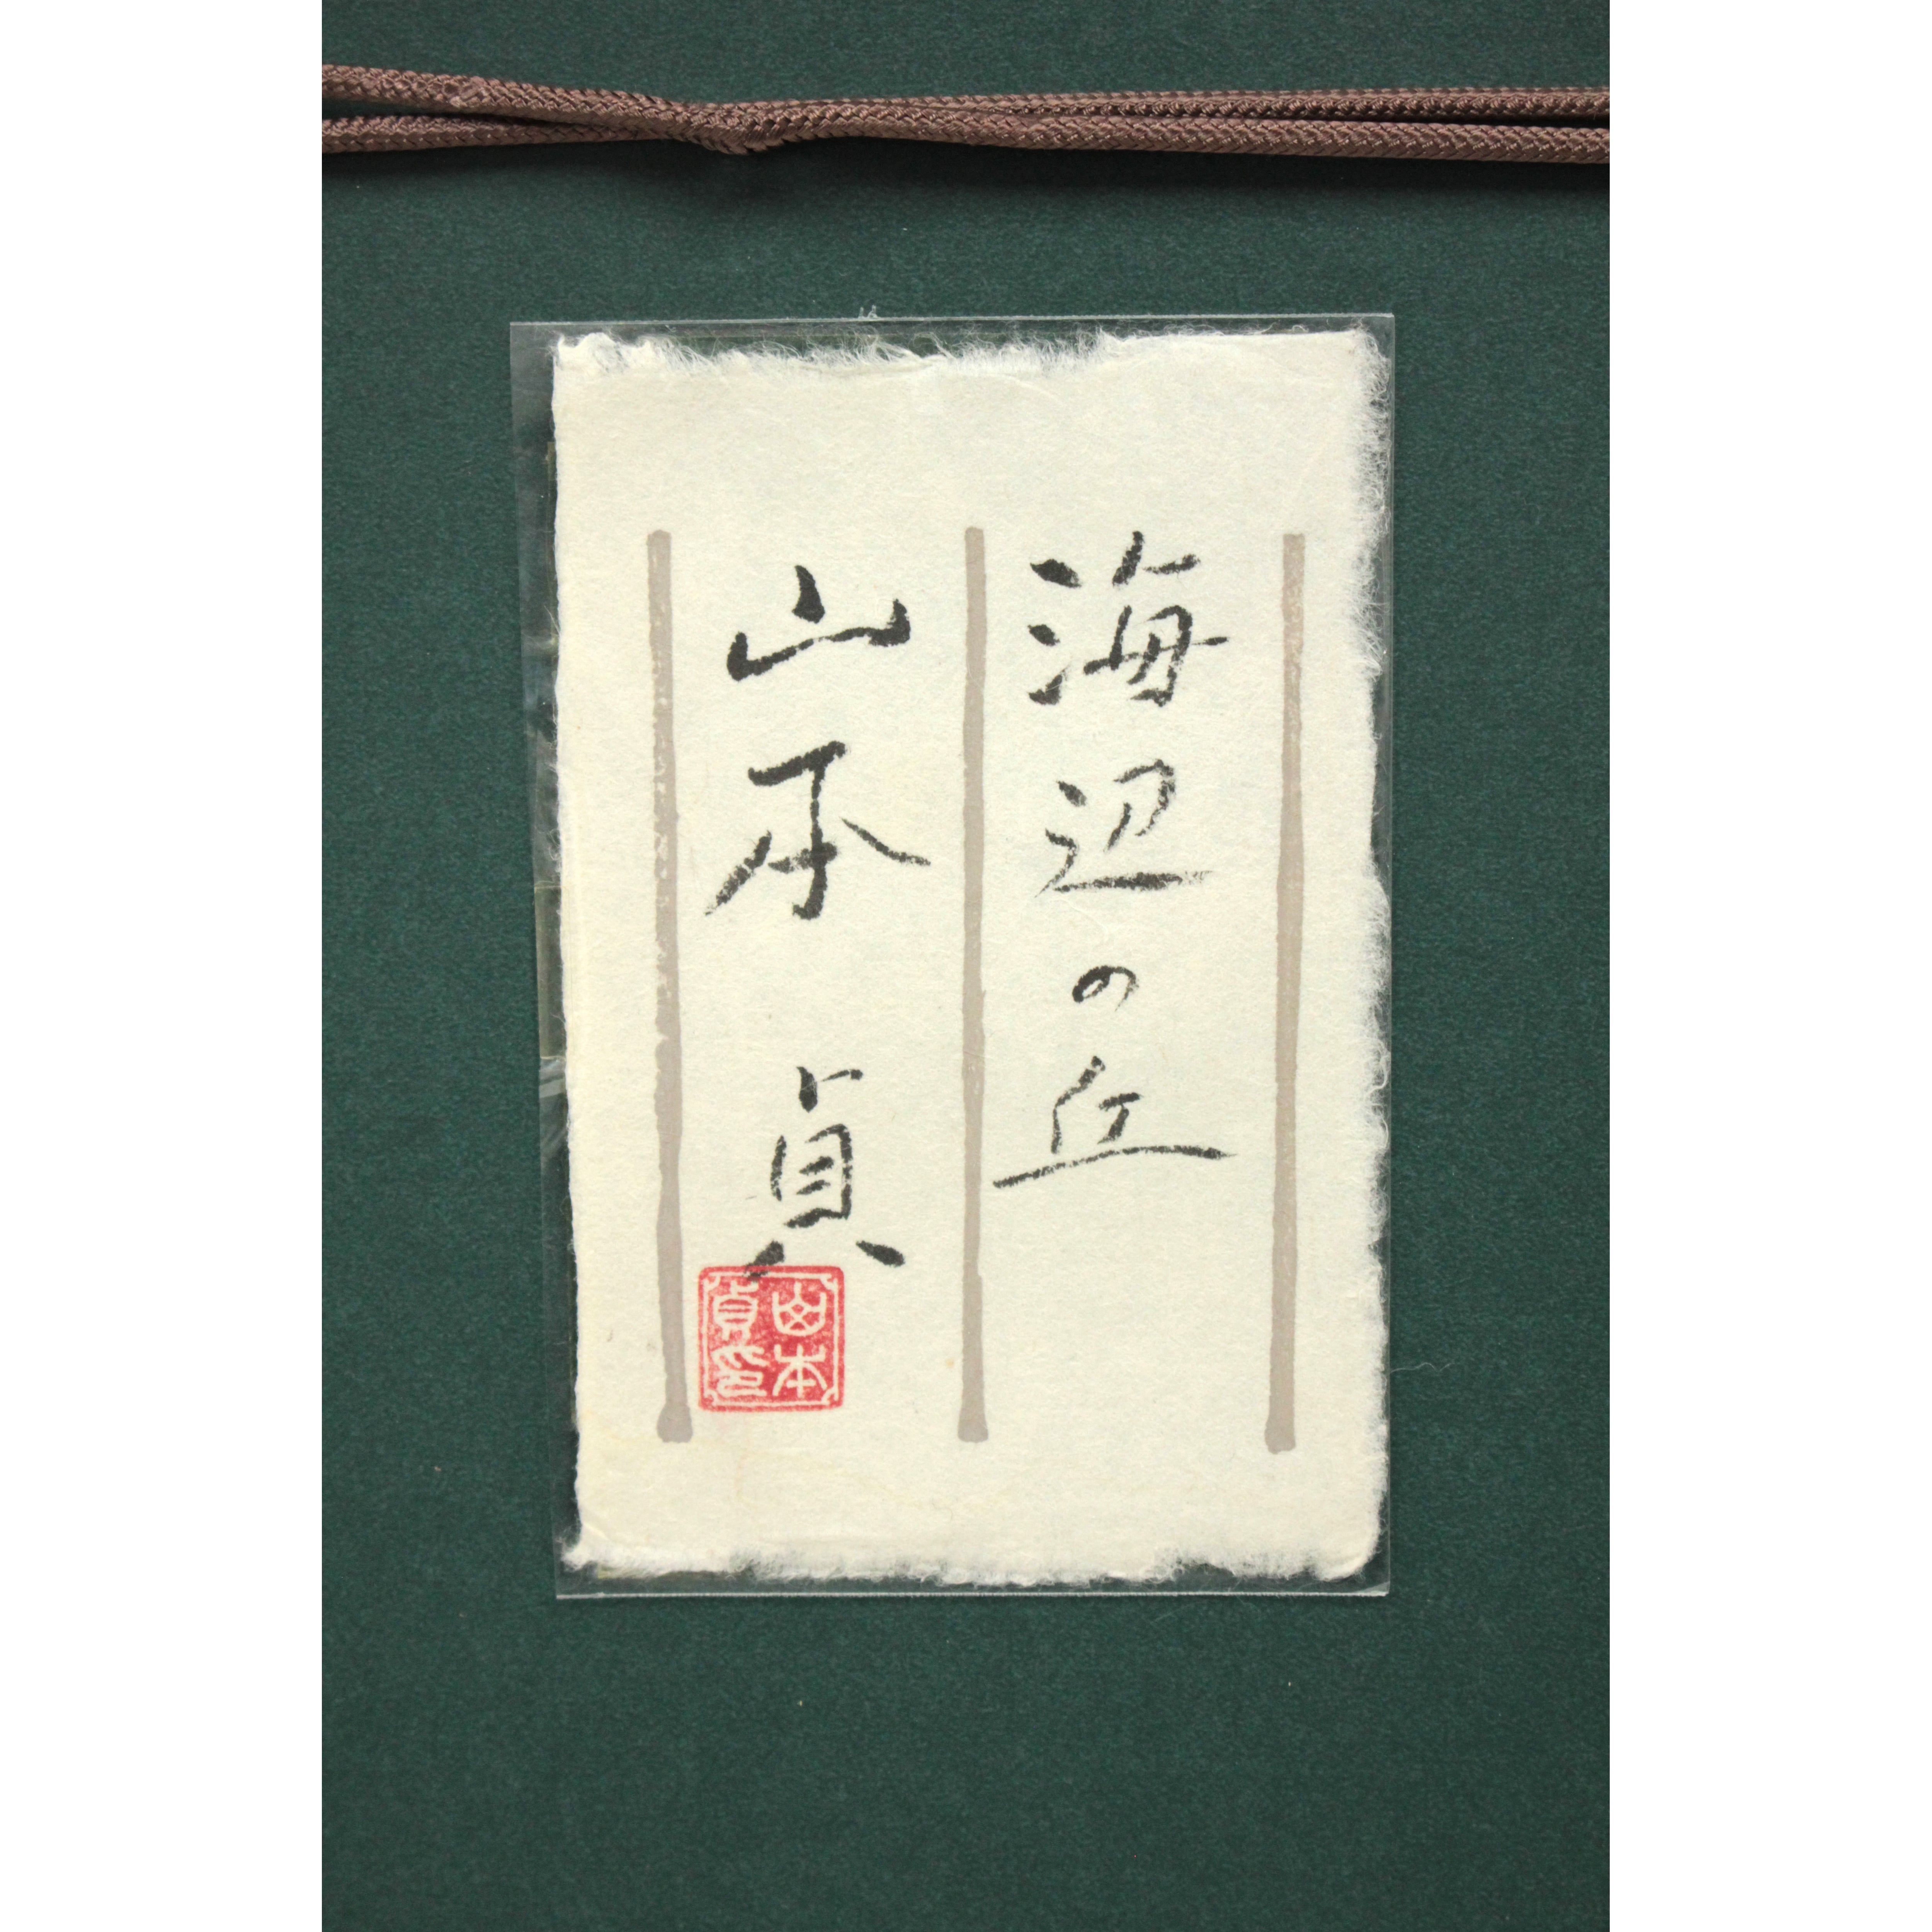 海辺の丘
山本 貞
山本
貞印